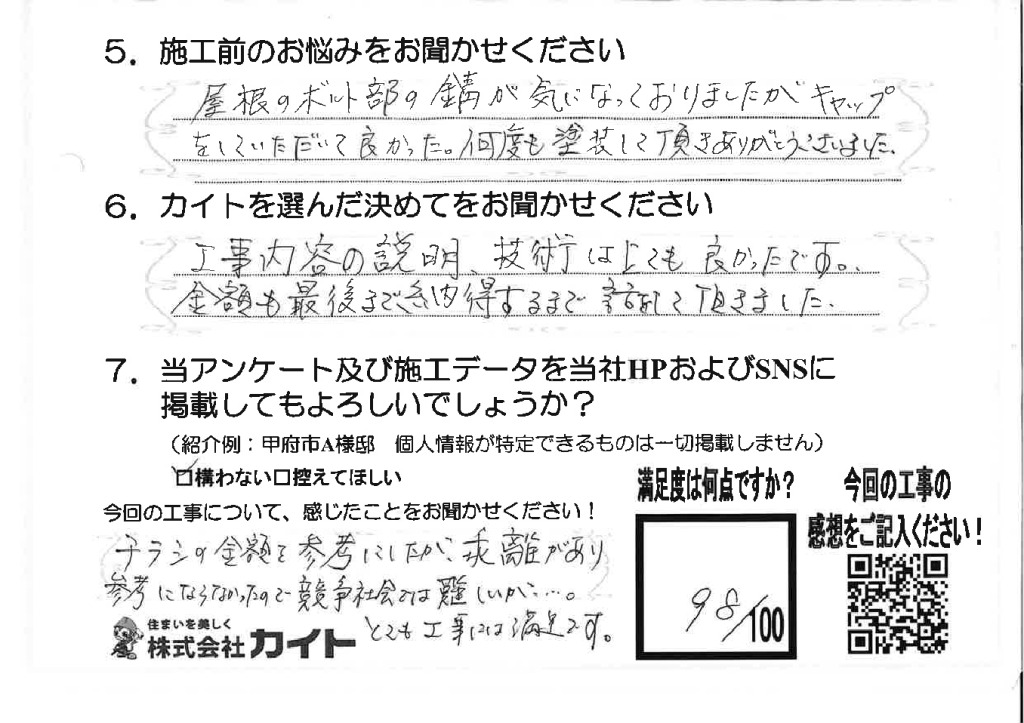 5. 施工前のお悩みをお聞かせください
屋根のボルト部の錆が気になっておりましたがキャップ
をしていただいて良かった。何度も塗装して頂きありがとうございました。
6. カイトを選んだ決めてをお聞かせください
工事内容の説明、技術はとても良かったです。
金額も最後まで納得するまで話して頂きました。
7. 当アンケート及び施工データを当社HPおよびSNSに
掲載してもよろしいでしょうか？
（紹介例：甲府市A様邸　個人情報が特定できるものは一切掲載しません）
☑構わない□控えてほしい
今回の工事について、感じたことをお聞かせください！
チラシの金額を参考にしたが、乖離があり
参考にならなかったので競争社会では難しいが…。
とても工事には満足です。
住まいを美しく
株式会社カイト
満足度は何点ですか？
98/100
今回の工事の
感想をご記入ください！